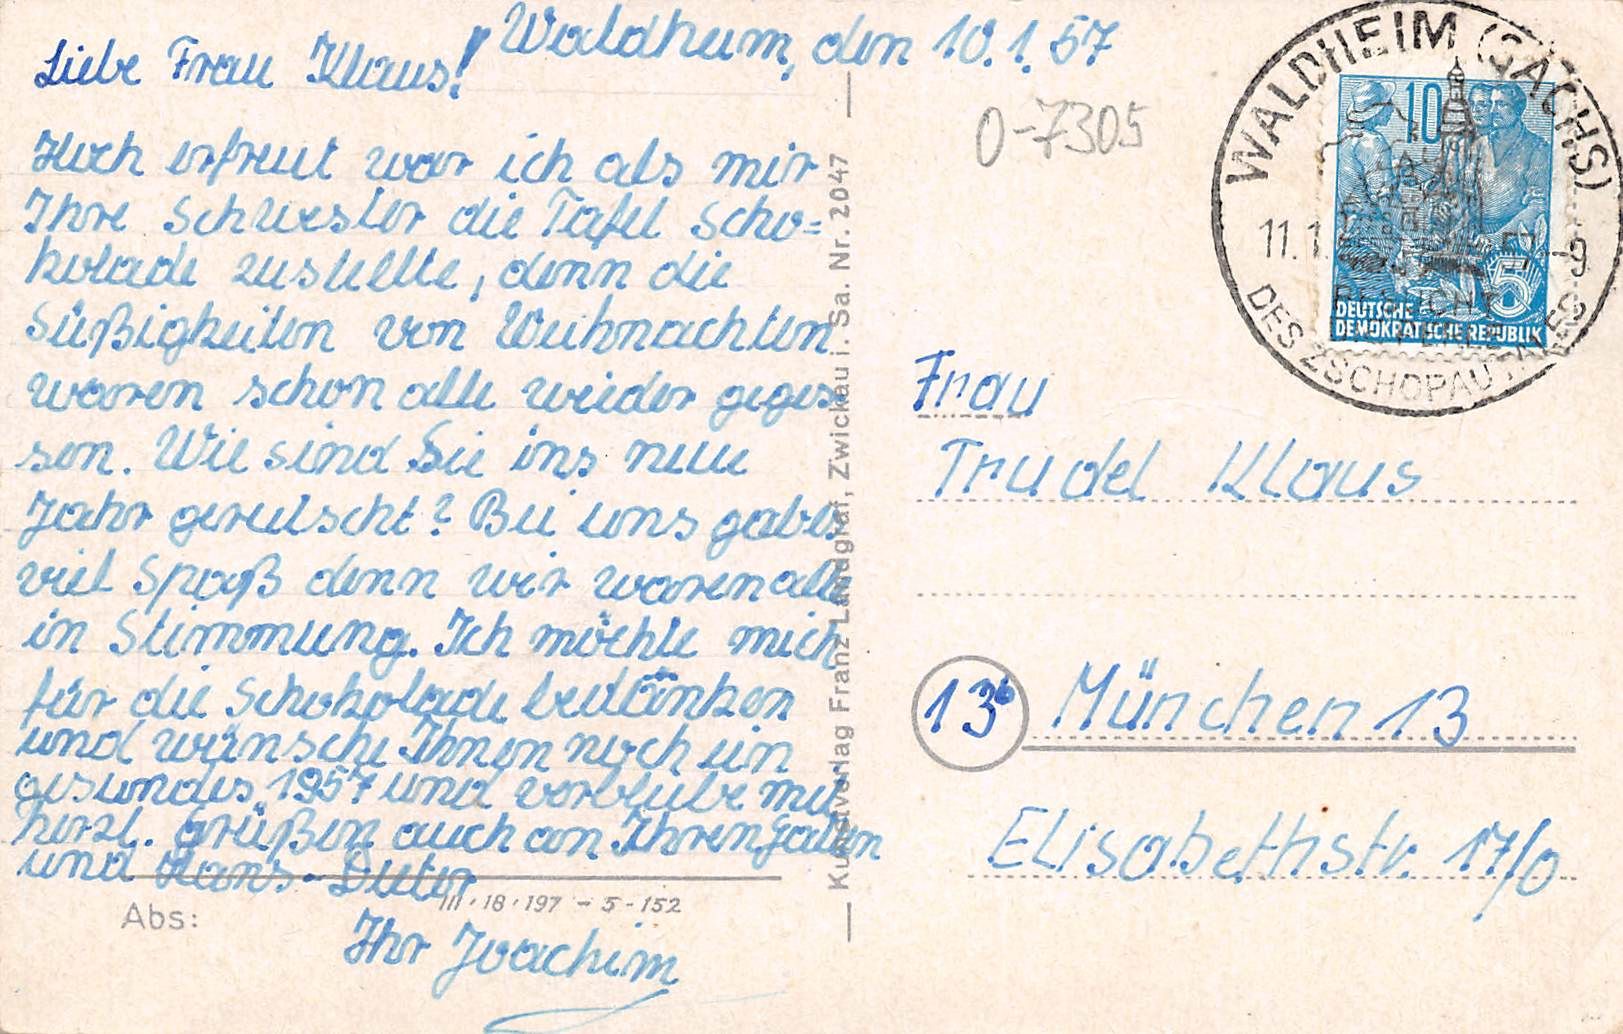 Waldheim, den 10.1.57
Liebe Frau Klaus!
Hoch erfreut war ich als mir
Ihre Schwester die Tafel Scho=
kolade zustellte, denn die
Süßigkeiten von Weihnachten
waren schon alle wieder geges
sen. Wie sind Sie ins neue
Jahr gerutscht? Bei uns gabes
viel Spaß denn wir waren alle
in Stimmung. Ich möchte mich
für die Schokolade bedänken
und wünsche Ihnen noch ein
gesundes 1957 und verbleibe mit
herzl. Grüßen auch an Ihren Gatten
und Hans-Dieter
Ihr Joachim
Abs:
III·18·197 - 5-152
Kunstverlag Franz Landgraf, Zwickau i. Sa. Nr. 2047
0-7305
WALDHEIM (SACHS)
11.1.57-9
BESUCHT
DES ZSCHOPAUTALES
10
5
DEUTSCHE
DEMOKRATISCHE REPUBLIK
Frau
Trudel Klaus
13b München 13
Elisabethstr. 17/0